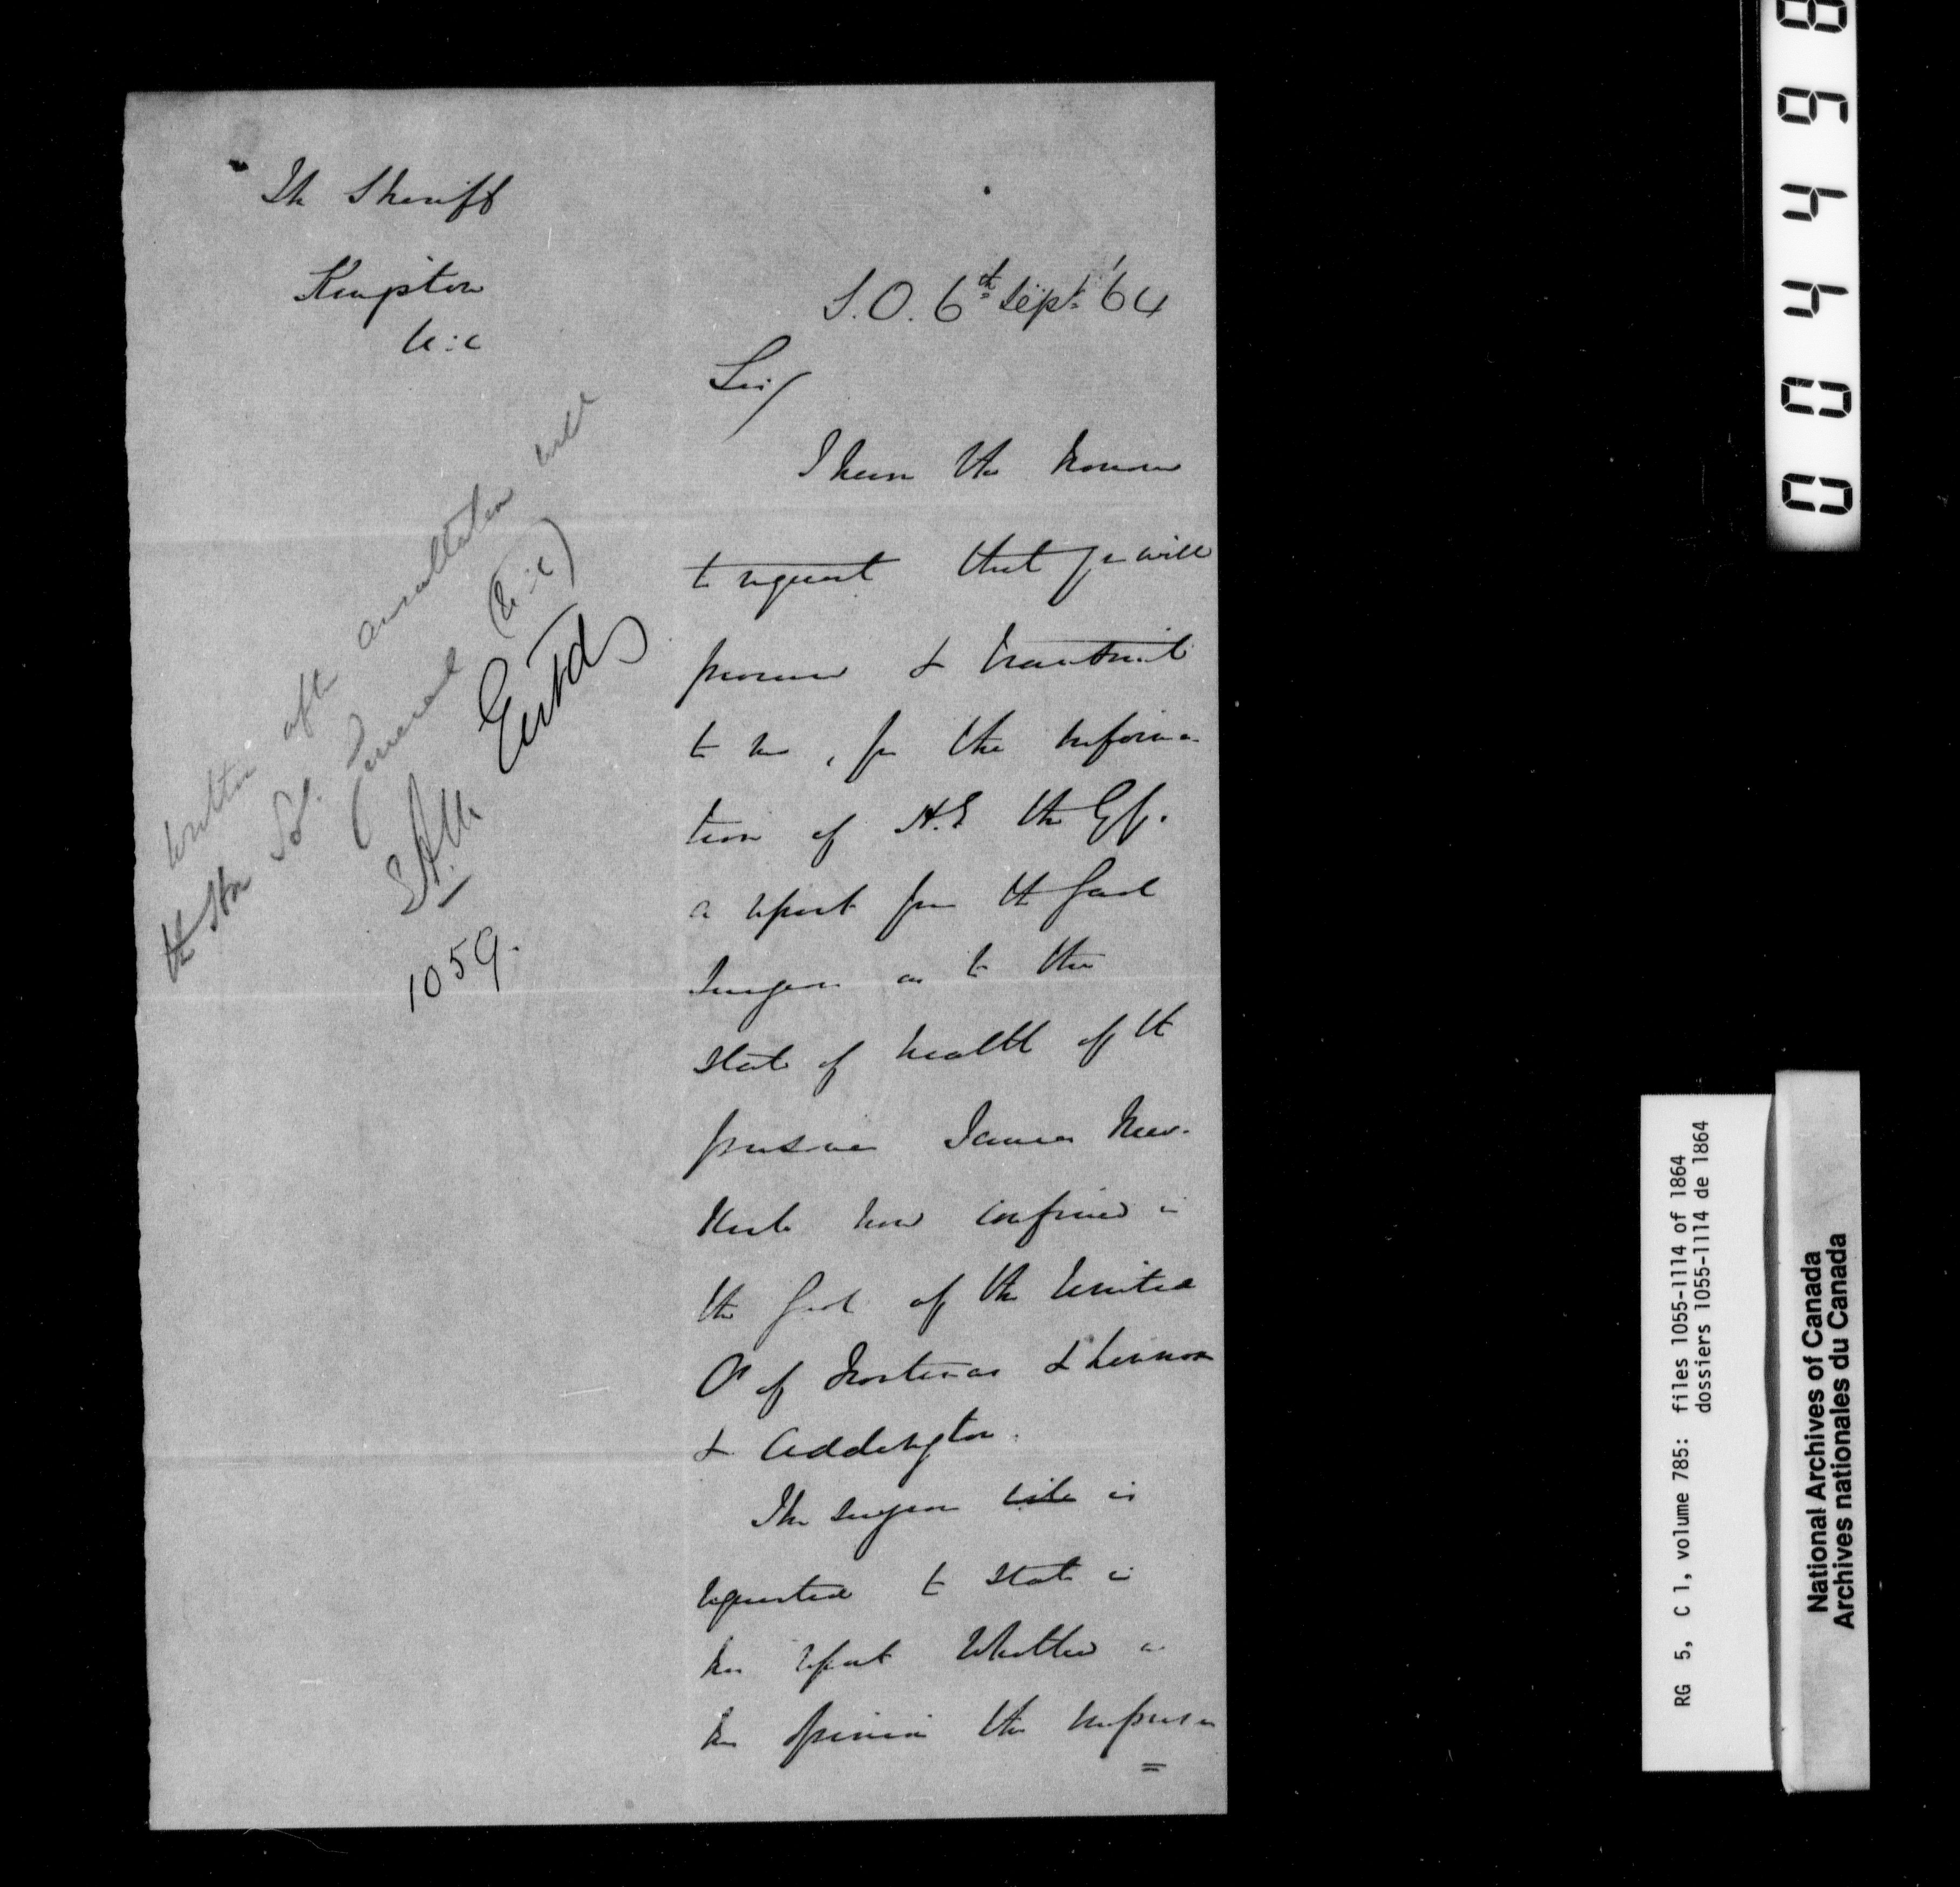 The Sheriff
Kingston
U:C
S.O. 6th Sept. '64
Sir/
I have the honour
to request that you will
procure & transmit
to me, for the informa-
tion of H.E the GG.
a report from the Gaol
Surgeon as to the
state of health of the
prisoner James
now confined in
the Gaol of the United
Cs of Frontenac & Lennox
& Addington.
The Surgeon is
requested to state in
his report whether in
his opinion the impris
=
Written after consultation with
the Hon Sol. General (U:C)
Entd
1059.
004498
RG 5, C 1, volume 785: files 1055-1114 of 1864
dossiers 1055-1114 de 1864
National Archives of Canada
Archives nationales du Canada